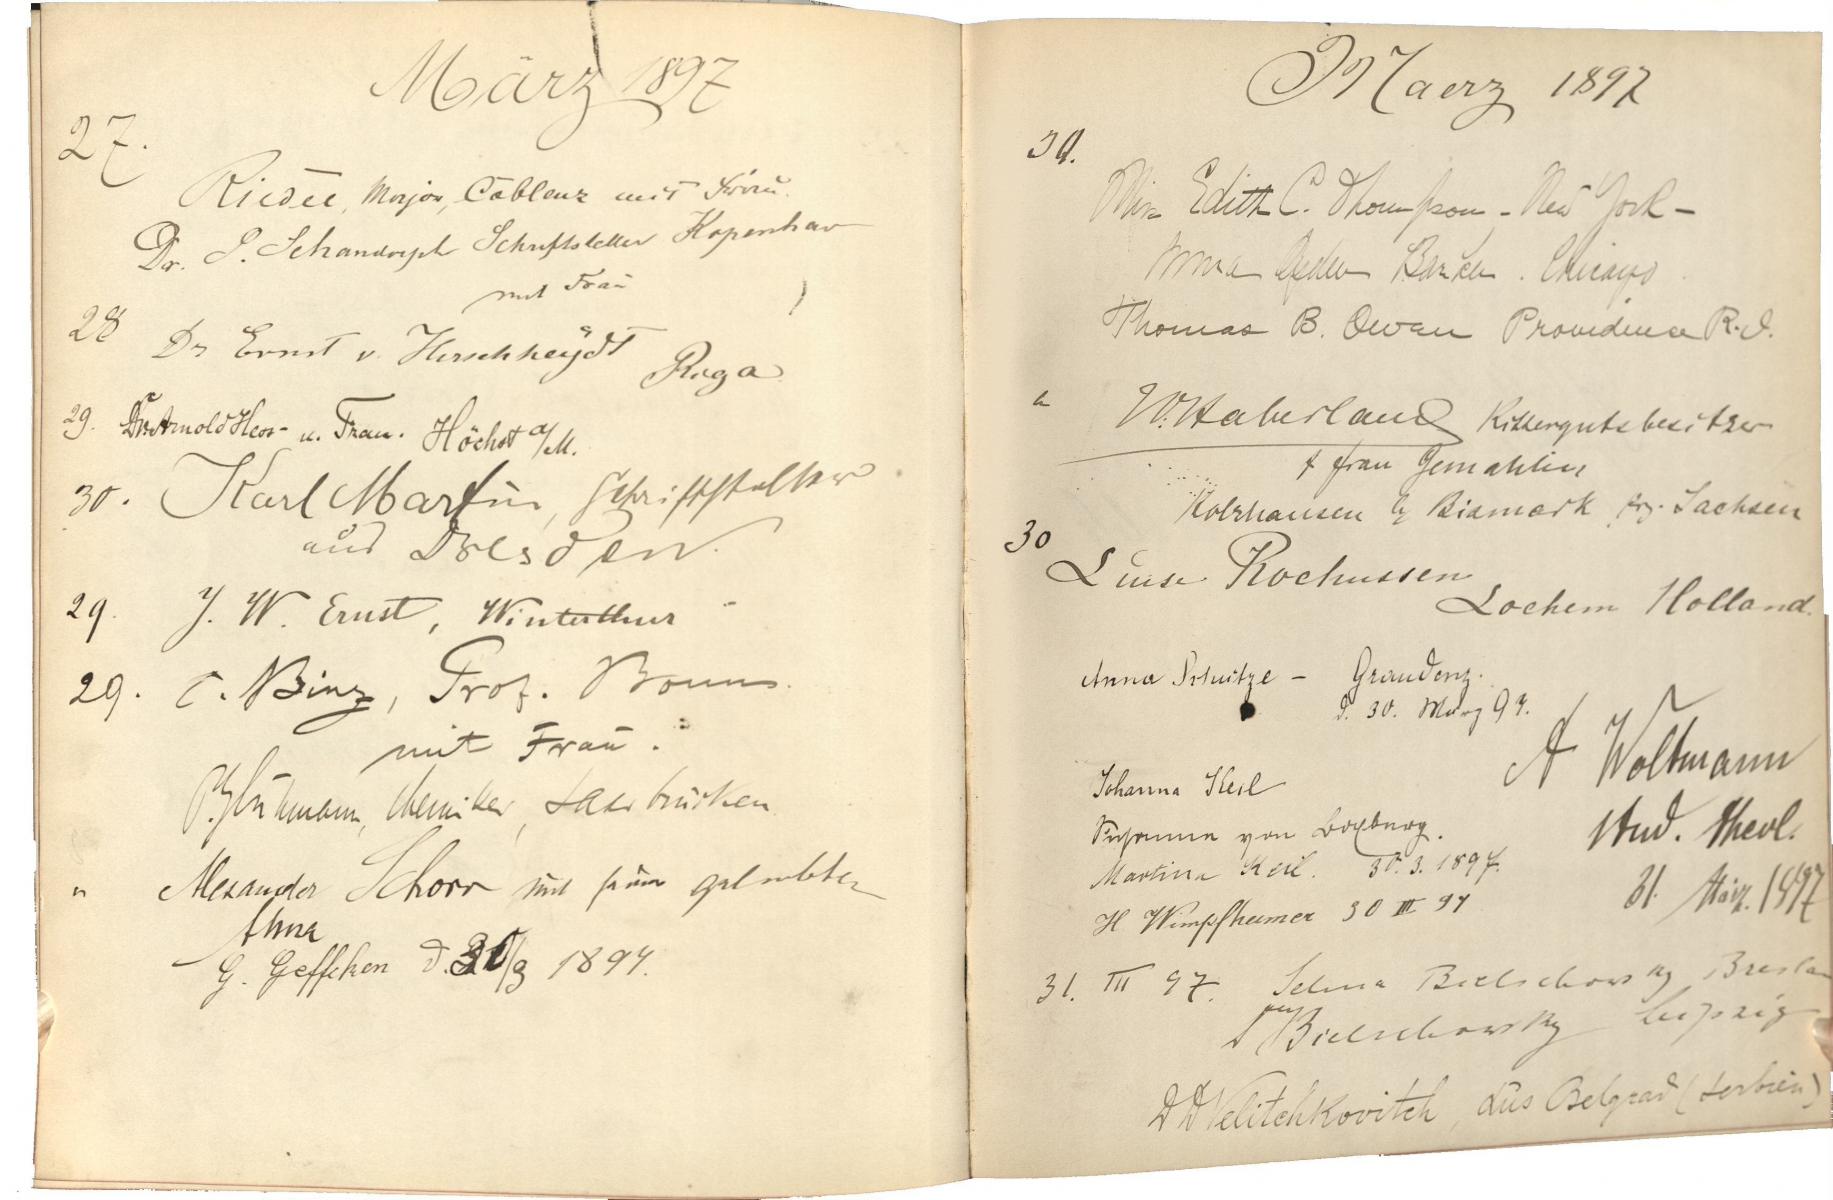 März 1897
27.
Riedel, Major, Coblenz mit Frau.
Dr. S. Schandorph Schriftsteller Kopenhav
mit Frau
28 Dr Ernst v. Hirschheydt Riga
29. Dr Arnold Hess u. Frau. Höchst a/M.
30. Karl Martin, Schriftsteller
aus Dresden.
29. J. W. Ernst, Winterthur
29. C. Binz, Prof. Bonn
mit Frau.
Chemiker, Saarbrücken
" Alexander Schorr mit geliebten
Anna
G. Geffcken d. 30/3 1897.
Maerz 1897
30.
Miss Edith C. Thompson - New York -
Chicago
Thomas B. Owen Providence R.I.
" W. Haberland Rittergutsbesitzer
+ frau Gemahlin
Holzhausen b/ Bismark Prz. Sachsen
30
Luise Rochussen
Lochem Holland.
Anna Schultze - Graudenz.
d. 30. März 97.
Johanna Keil
von Boxberg.
Martina Keil. 30. 3. 1897.
H Wimpfheimer 30 III 97
A Woltmann
stud. theol.
31. März. 1897
31. III 97. Selma Bielschowsky Breslau
Bielschowsky Leipzig
D D Velitchkovitch, aus Belgrad (Serbien)